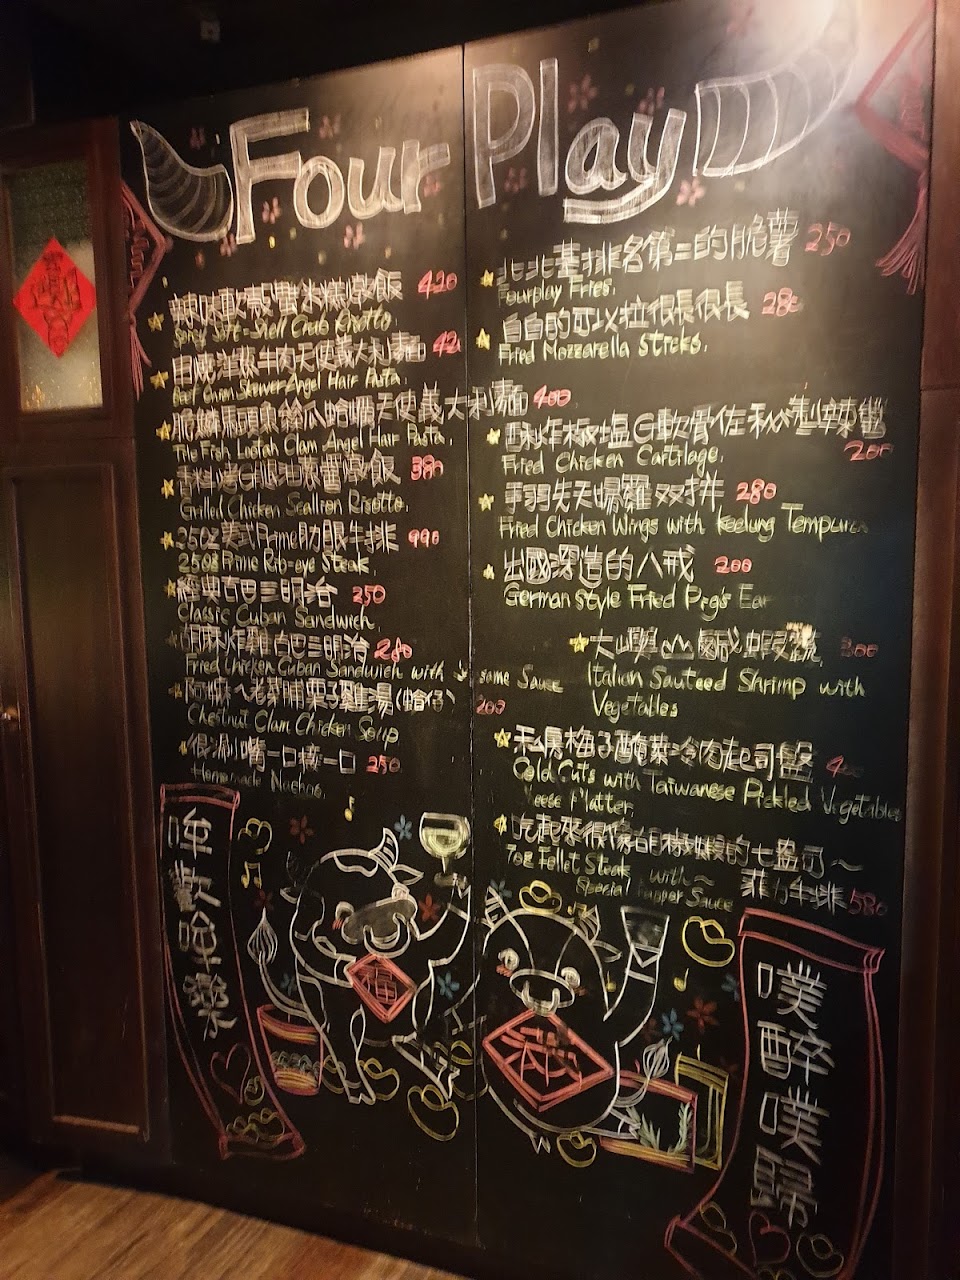 Four Play
辣味軟殼蟹米糕燉飯 420
Spicy Soft-Shell Crab Risotto
牛肉天使義大利麵 42
Beef Onion Skewer Angel Hair Pasta.
脆鱗馬頭魚絲瓜蛤蠣天使義大利麵 400
Tile Fish Loofah Clam Angel Hair Pasta.
燉飯 380
Grilled Chicken Scallion Risotto.
25oz美式Prime肋眼牛排 990
25oz Prime Rib-eye Steak.
經典古巴三明治 250
Classic Cuban Sandwich.
炸雞古巴三明治 280
Fried Chicken Cuban Sandwich with some Sauce
栗子雞湯(蛤仔) 200
Chestnut Clam Chicken Soup
很涮嘴一口接一口 250
Homemade Nachos.
北北基排名第二的脆薯 250
Fourplay Fries.
白白的可以拉很長很長 280
Fried Mozzarella Sticks.
酥炸椒塩G軟骨佐私製辣醬 200
Fried Chicken Cartilage.
手羽先天婦羅双拼 280
Fried Chicken Wings with Keelung Tempura
出國深造的八戒 200
German Style Fried Pig's Ear
鹹蝦 300
Italian Sauteed Shrimp with
Vegetables
私房梅子醃菜冷肉起司盤
Cold Cuts with Taiwanese Pickled Vegetables
Cheese Platter.
吃起來很像胡椒蝦的七盎司~
菲力牛排 580
7oz Fillet Steak with~
Special Pepper Sauce
哞歡哞樂
福
春
噗醉噗歸